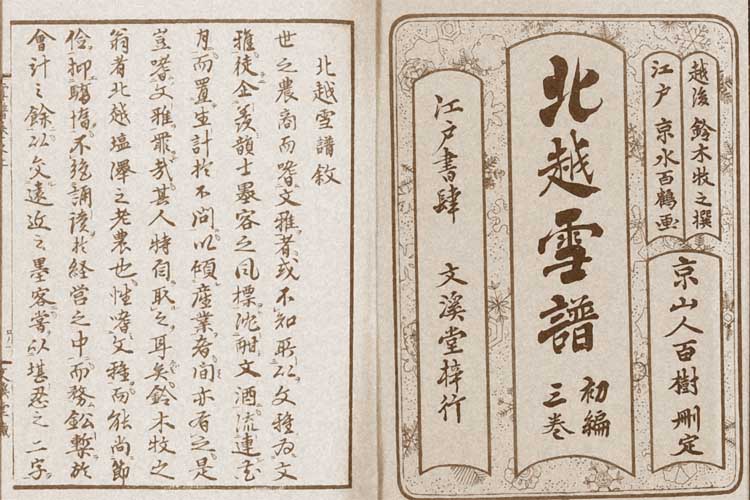 越後 鈴木牧之撰
江戸 京水百鶴画
京山人百樹刪定
北越雪譜
初編
三巻
江戸書肆 文溪堂梓行
北越雪譜敘
世之農商而嗜文雅者或不知所以文雅為文
雅徒企羨韻士墨客之風標沈酣文酒流連花
月而置生計於不問以傾産業者間亦有之是
豈嗜文雅罪哉其人特自取之耳矣鈴木牧之
翁者北越塩澤之老農也性嗜文雅而能尚節
倹抑驕惰不絶誦讀於経営之中而務鉛槧於
會計之餘以交遠近之墨客嘗以堪忍之二字